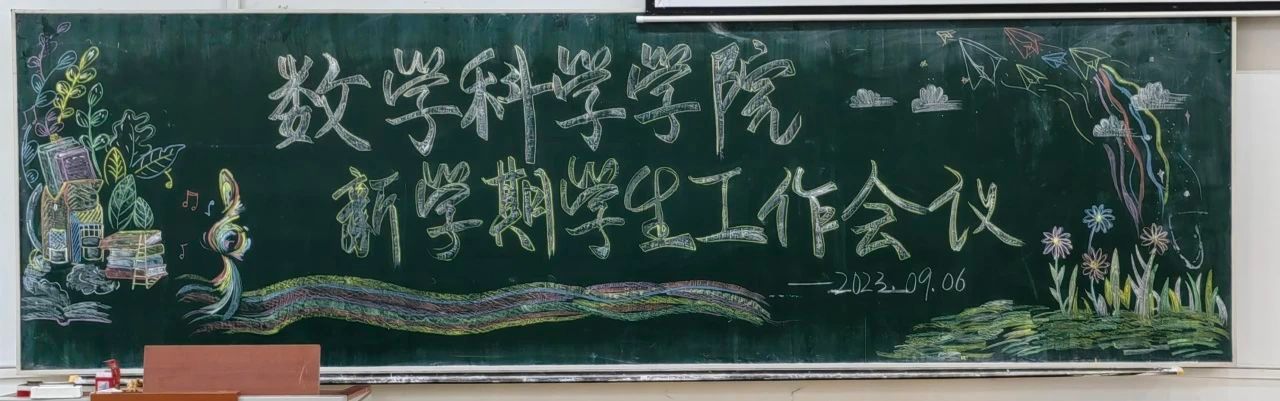 数学科学学院
新学期学生工作会议
——2023.09.06